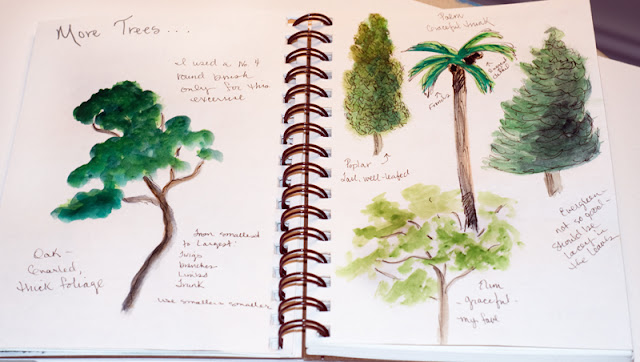 More Trees...
I used a No. 9
round brush
only for this
exercise
Oak -
Gnarled,
thick foliage
From smallest
to Largest:
Twigs
Branches
Limbs
Trunk
use smaller & smaller
Palm
Graceful trunk
Fronds
Poplar
Tall, well-leafed
Evergreen -
not so good -
should be
lacey in
the
Elm
- graceful -
my fave